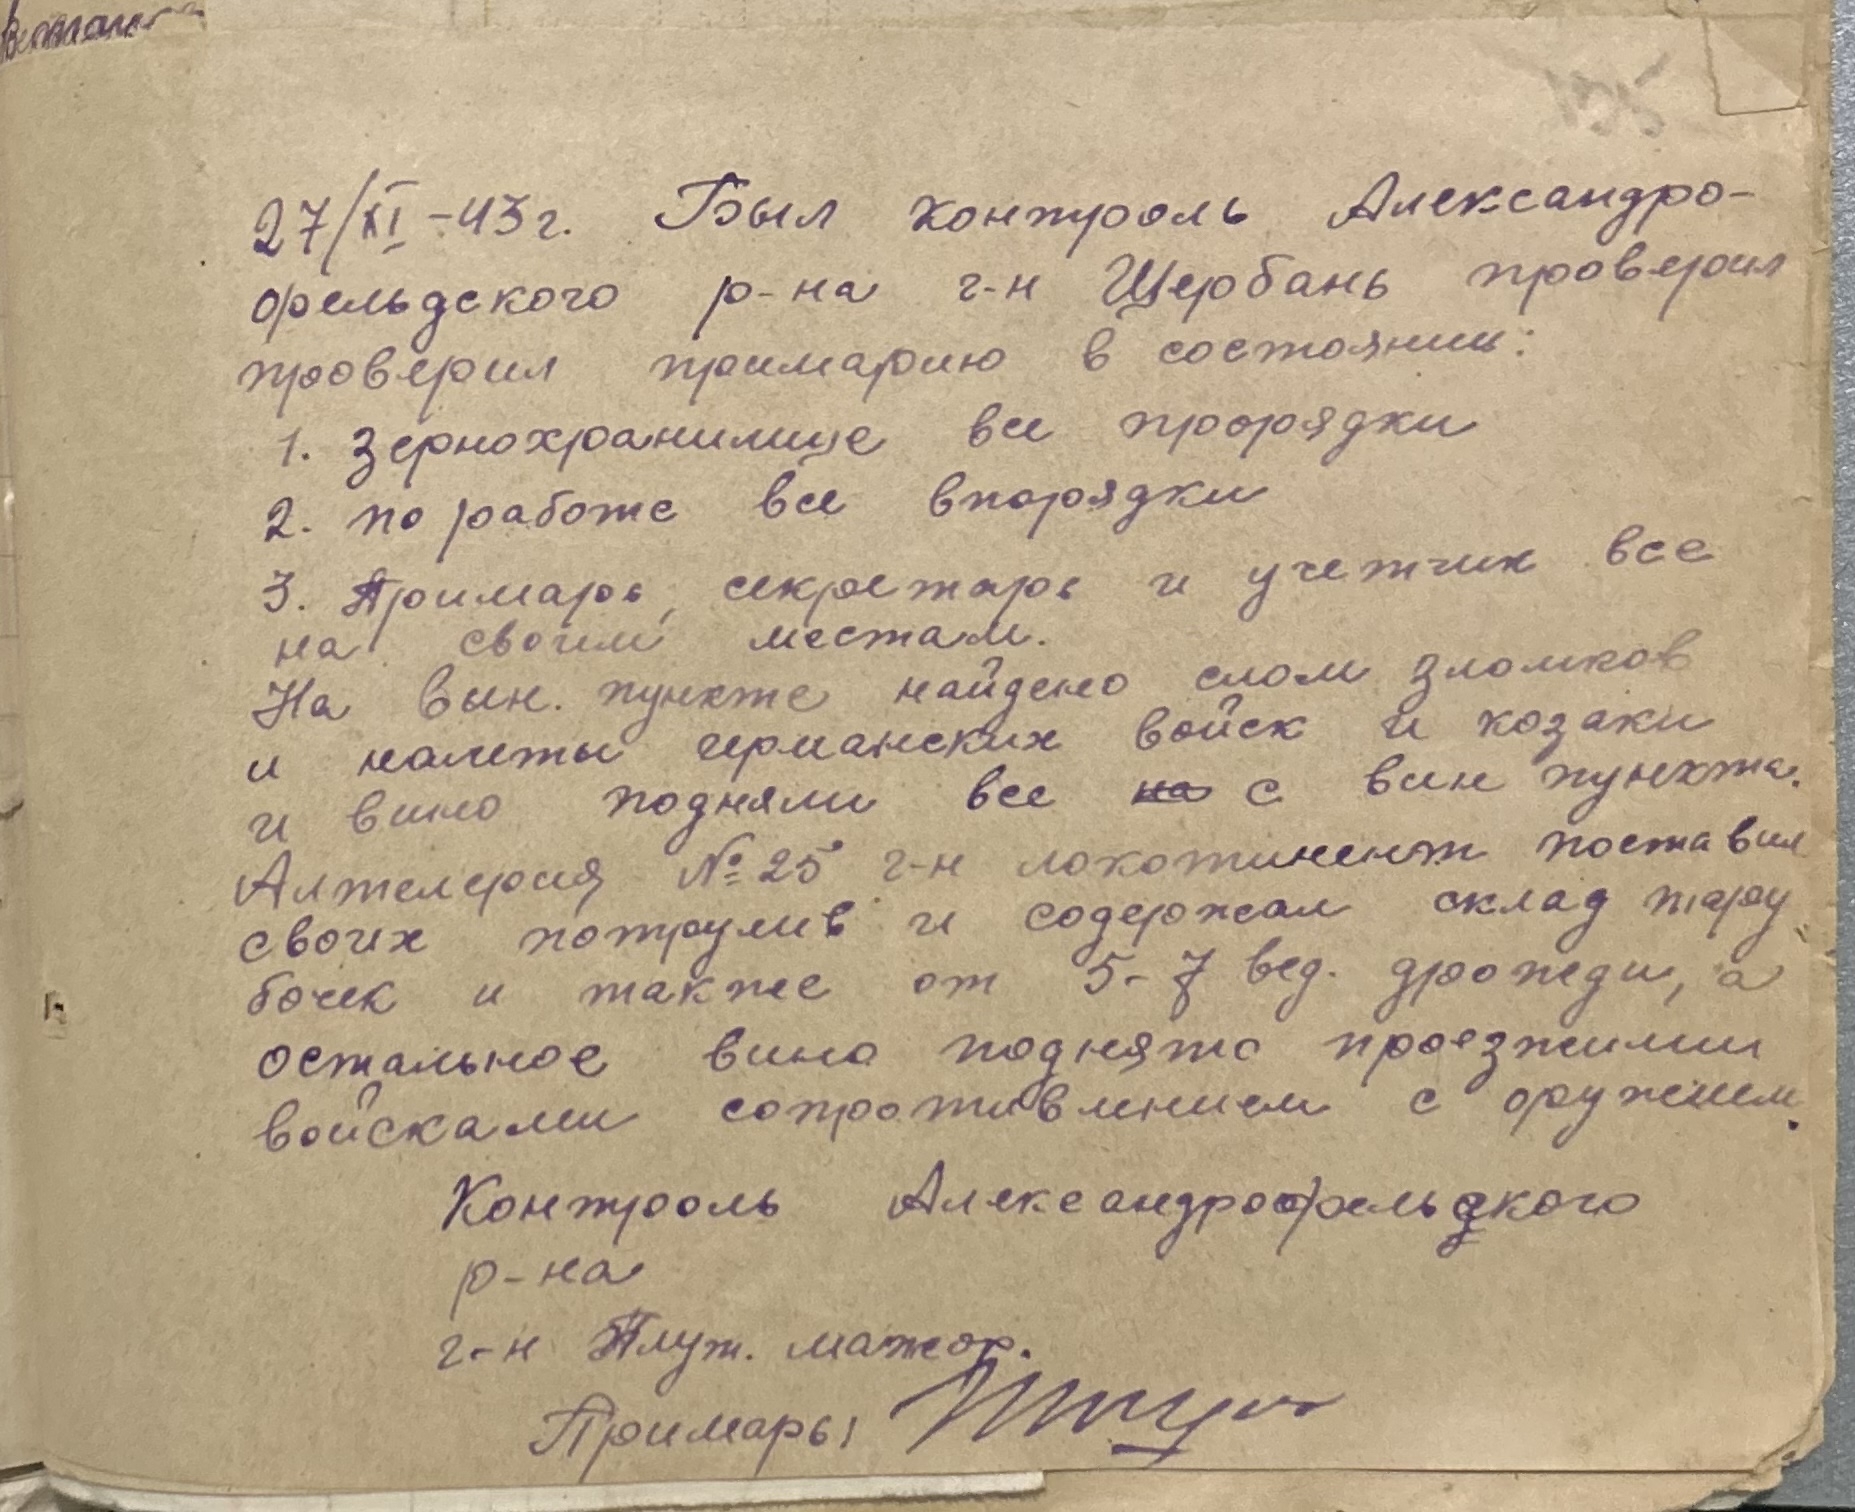 135
27/XI-43г. Был контроль Александро-
фельдского р-на г-н Щербань проверил
проверил примарию в состоянии:
1. Зернохранилище все прорядки
2. по работе все впорядки
3. Примарь, секретарь и учетчик все
на своим местам.
На вин. пункте найдено слом зломков
и налеты германских войск и козаки
и вино подняли все на с вин пункта.
Алтелерия № 25 г-н локотинент поставил
своих потрулив и содержал склад тару
бочек и также от 5-7 вед. дрожди, а
остальное вино поднято проезжими
войсками сопротивлением с оружием.
Контроль Александрофельдкого
р-на
г-н Плут. мажор.
Примарь: